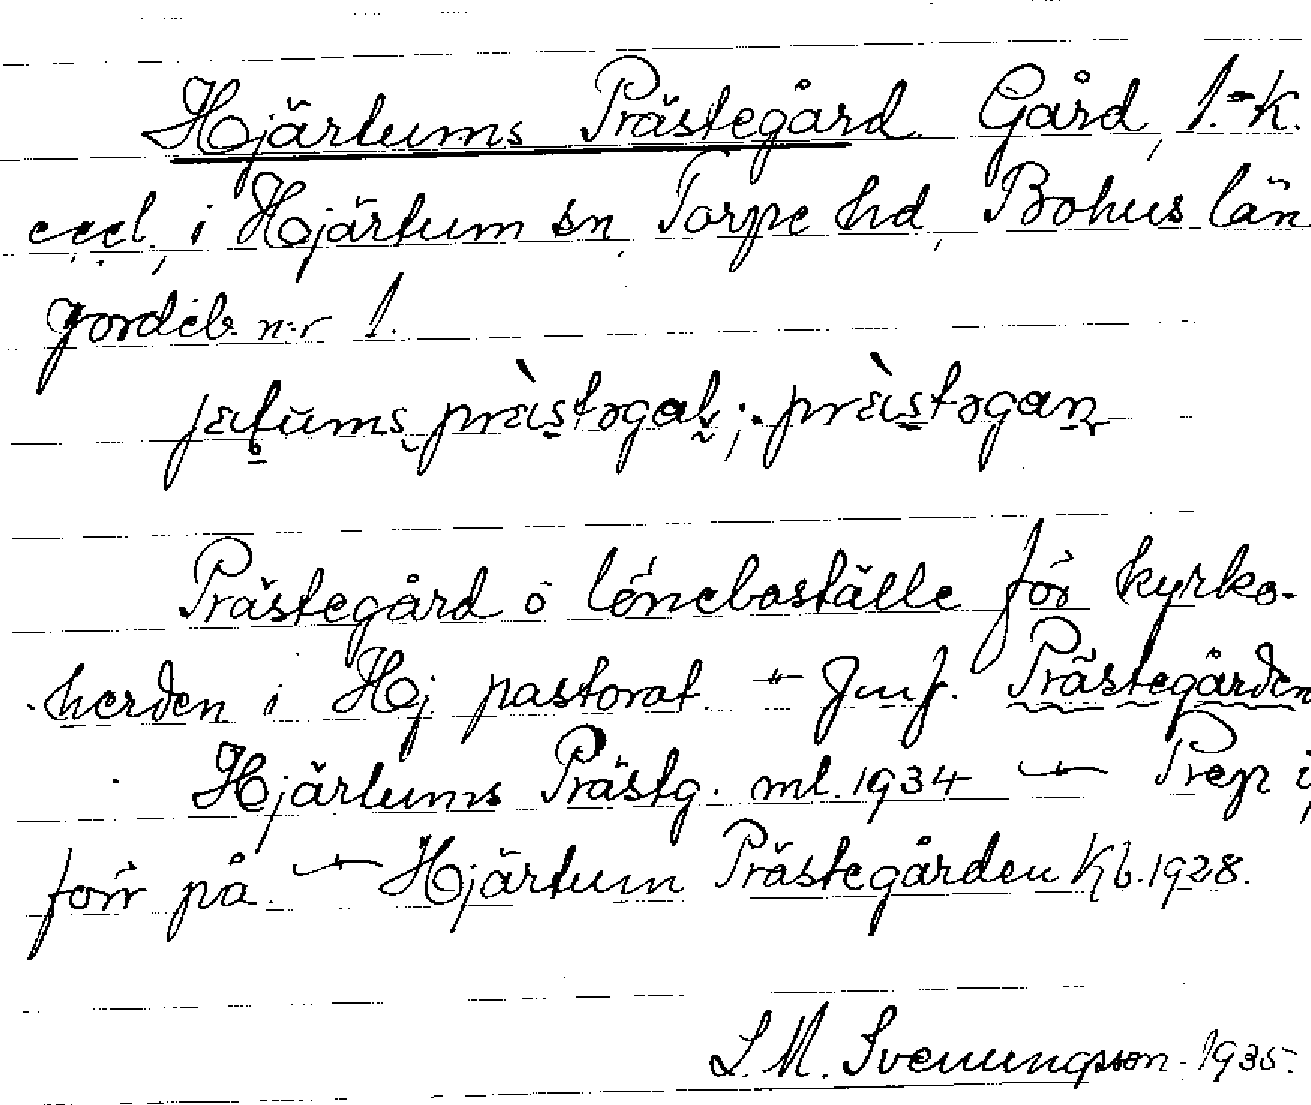 Hjärtums Prästegård Gård, 1.-K.
eccl., i Hjärtum sn, Torpe hd, Bohus län
Jordeb. n:r 1.
Prästegård o löneboställe för kyrko-
herden i Hj pastorat. - Jmf. Prästegården
Hjärtums Prästg. ml. 1934 - Prep i
förr på. - Hjärtum Prästegården Kb. 1928.
S. M. Svenungsson 1935.